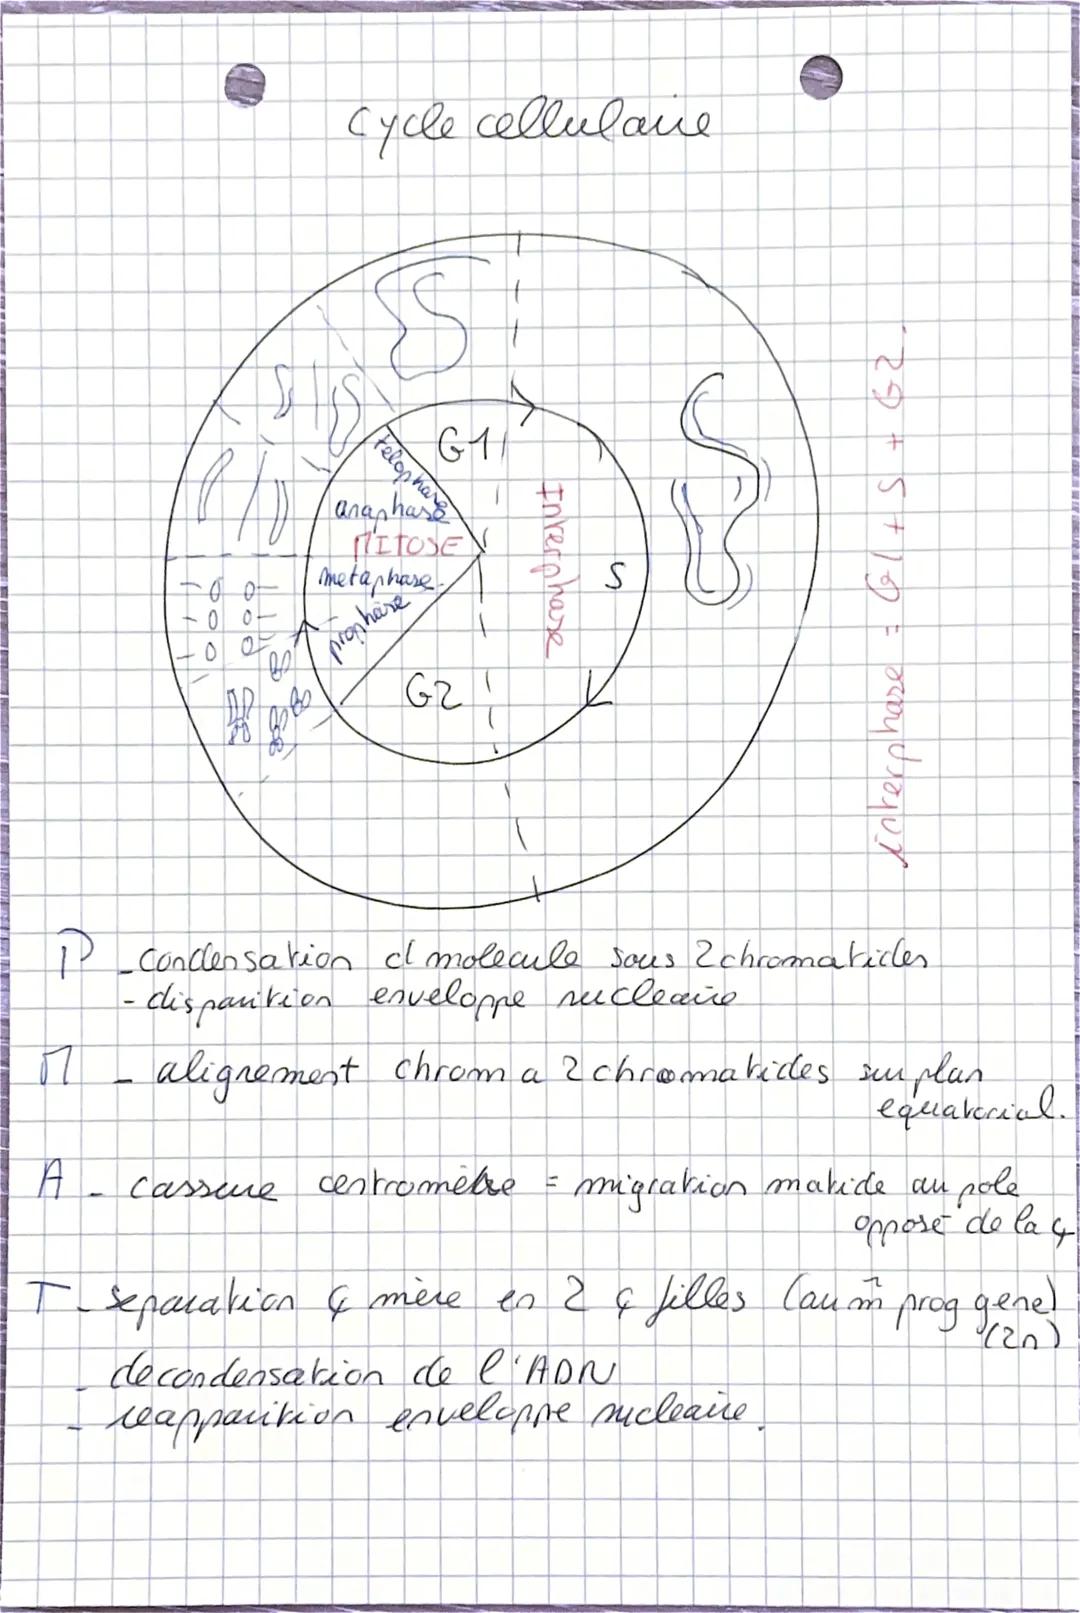 Cycle cellulaire
G1
Télophase
anaphase
MITOSE
metaphase
prophase
Interphase
S
G2
interphase = G1 + S + G2.
P - condensation d molecule sous 2 chromatides
- disparition enveloppe nucleaire
M - alignement chrom a 2 chromatides sur plan
equatorial.
A - cassure centromètre = migration matide au pole
opposé de la ȼ
T - separation ȼ mère en 2 ȼ filles (au m̂ prog gene)
(2n)
- decondensation de l'ADN
- reapparition enveloppe nucleaire.